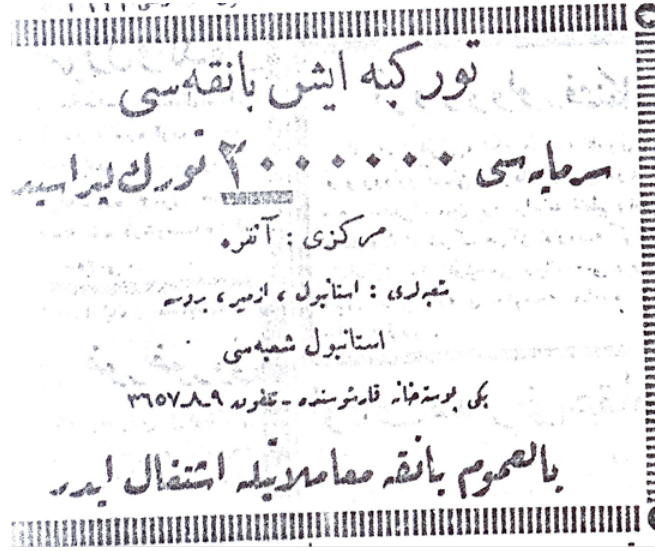 توركیه ایش بانقه‌سی
سرمایه‌سی ۲۰۰۰۰۰۰ تورك لیراسیدر
مركزی : آنقره
شعبه‌لری : استانبول ، ازمیر ، بروسه
استانبول شعبه‌سی
یكی پوسته‌خانه قارشوسنده ـ تلفون ۹ـ۸ـ۳٦٥٧
بالعموم بانقه معاملاتیله اشتغال ایدر